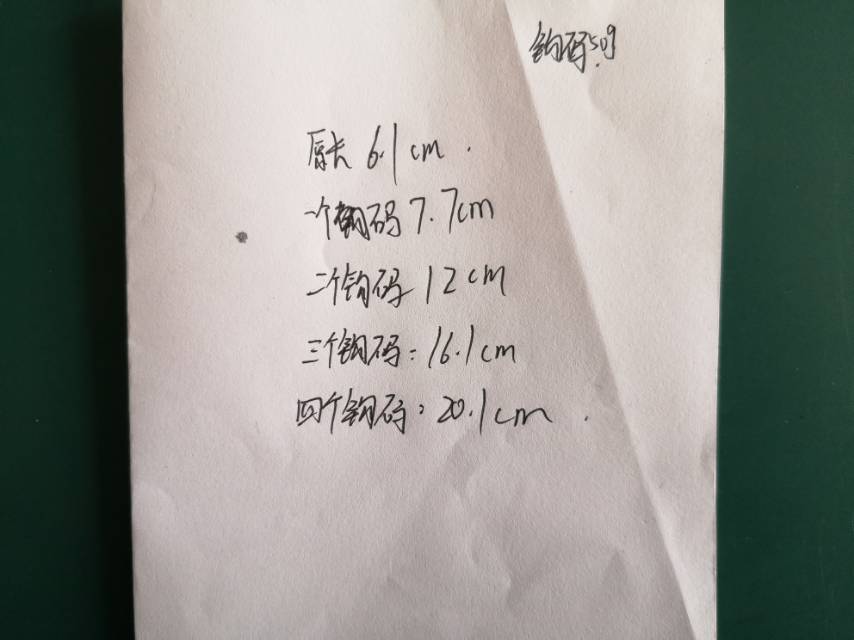 钩码50g
原长 6.1cm.
一个钩码 7.7cm
二个钩码 12cm
三个钩码：16.1cm
四个钩码：20.1cm.